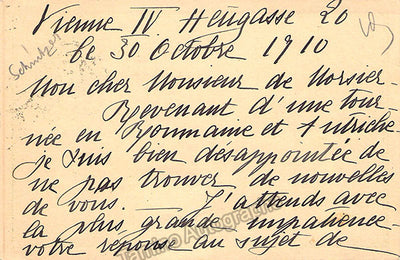 Vienne IV Heugasse 20
le 30 Octobre 1910
Schnitzer
Mon cher Monsieur de Morsier
Revenant d'une tour-
née en Roumanie et Autriche
je suis bien désappointée de
ne pas trouver de nouvelles
de vous. — J'attends avec
la plus grande impatience
votre réponse au sujet de
Tamino Autographs